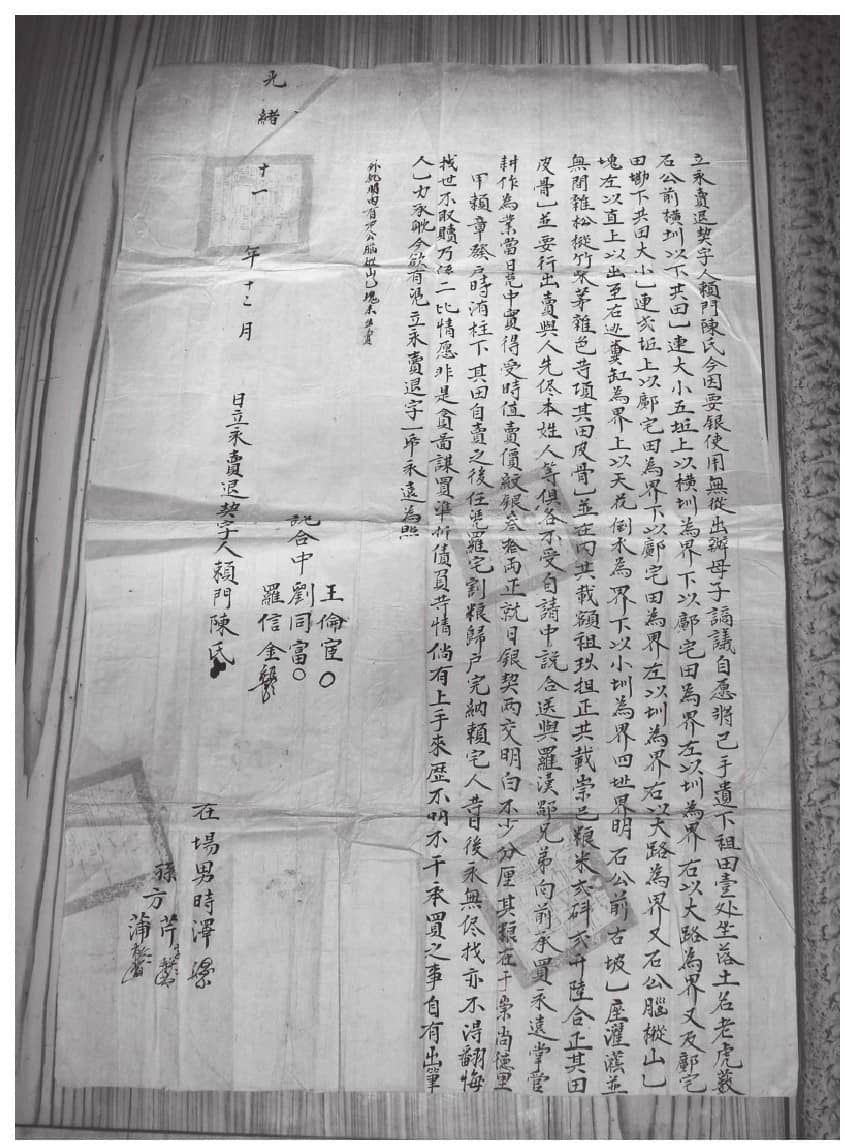 立永賣退契字人賴門陳氏今因要銀使用無從出辦母子謫議自愿將己手遺下祖田壹处坐落土名老虎藪
石公前横圳以下共田乚連大小五坵上以横圳為界下以鄺宅田為界左以圳為界右以大路為界又及鄺宅
田墈下共田大小乚連弍坵上以鄺宅田為界下以鄺宅田為界左以圳為界右以大路為界又石公腦樅山乚
塊左以直上以出至右迹糞缸為界上以天花倒水為界下以小圳為界四址界明石公前古坡乚座濯蔭並
無間雜松樅竹木茅雜色等項其田皮骨乚並在內共載額租玖担正共載崇邑粮米弍斗弍升陸合正其田
皮骨乚並要行出賣與人先侭本姓人等俱各不受自請中説合送與羅漢鄒兄弟向前承買永遠掌管
耕作為業當日憑中實得受時值賣價紋銀叁拾両正就日銀契両交明白不少分厘其粮在于崇尚德里
甲賴章發户時洧柱下其田自賣之後任憑羅宅割粮歸户完納賴宅人昔日後永無侭找亦不淂翻悔
找世不取贖乃係二比情愿非是貪啚謀買準折債負等情倘有上手來歷不明不干承買之事自有出筆
人乚力承躭今欲有憑立永賣退字一帋永遠為照
外批明田有石公腦樅山乚塊未出賣
王倫宦〇
説合中劉同富〇
羅信金
光緒十一年十二月 日立永賣退契字人賴門陳氏
在場男時澤
孫方芹
蒲